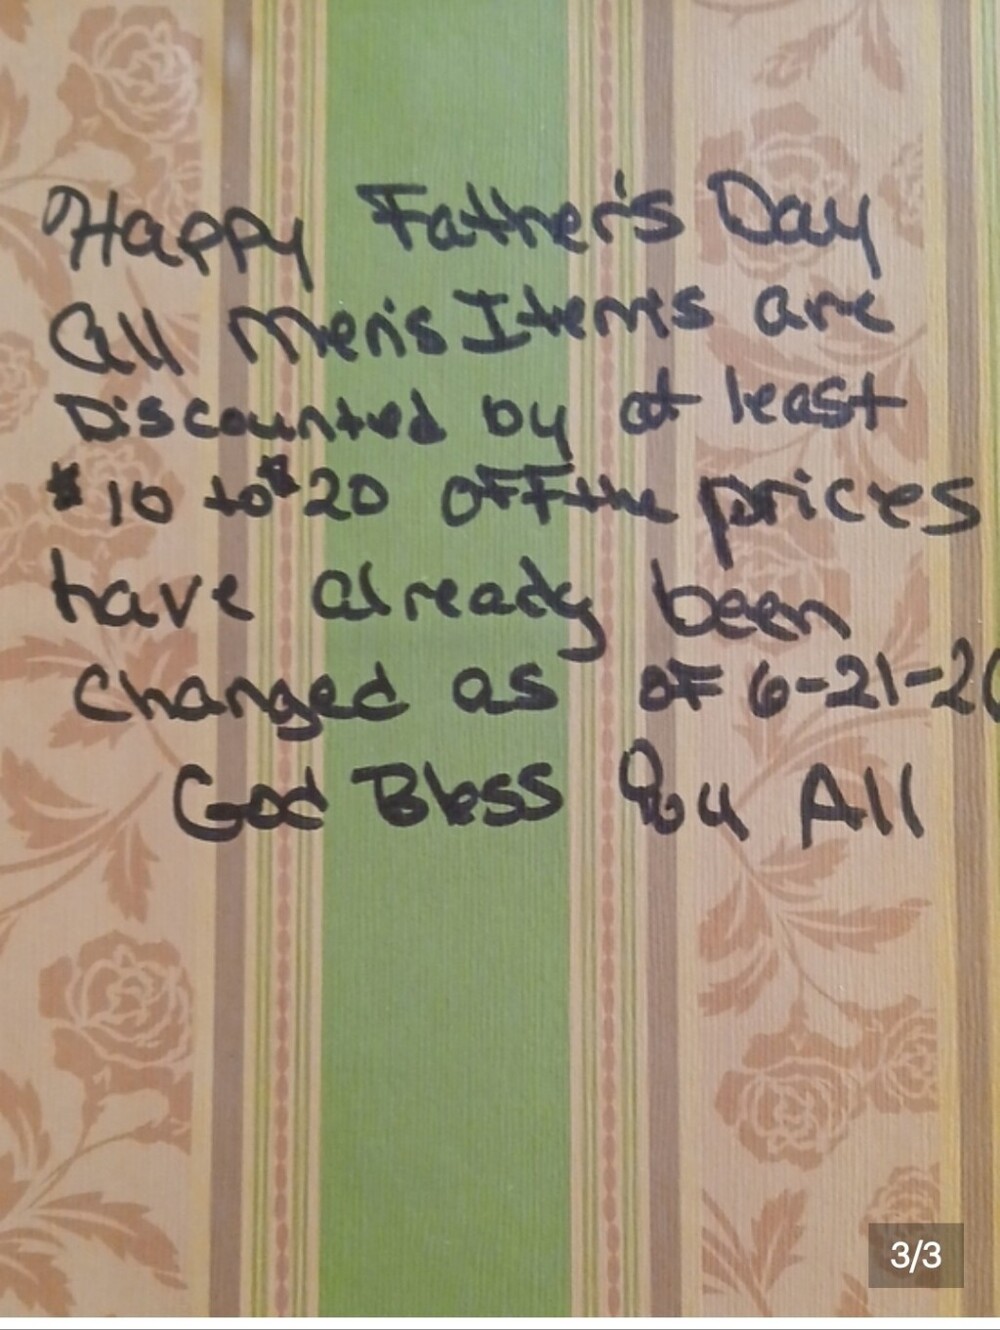 Happy Father's Day
All Men's Items are
Discounted by at least
$10 to $20 off the prices
have already been
changed as of 6-21-20
God Bless You All
3/3